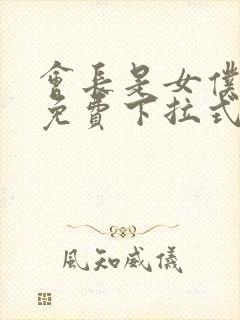 會長是女僕
免費下拉式
風知威儀